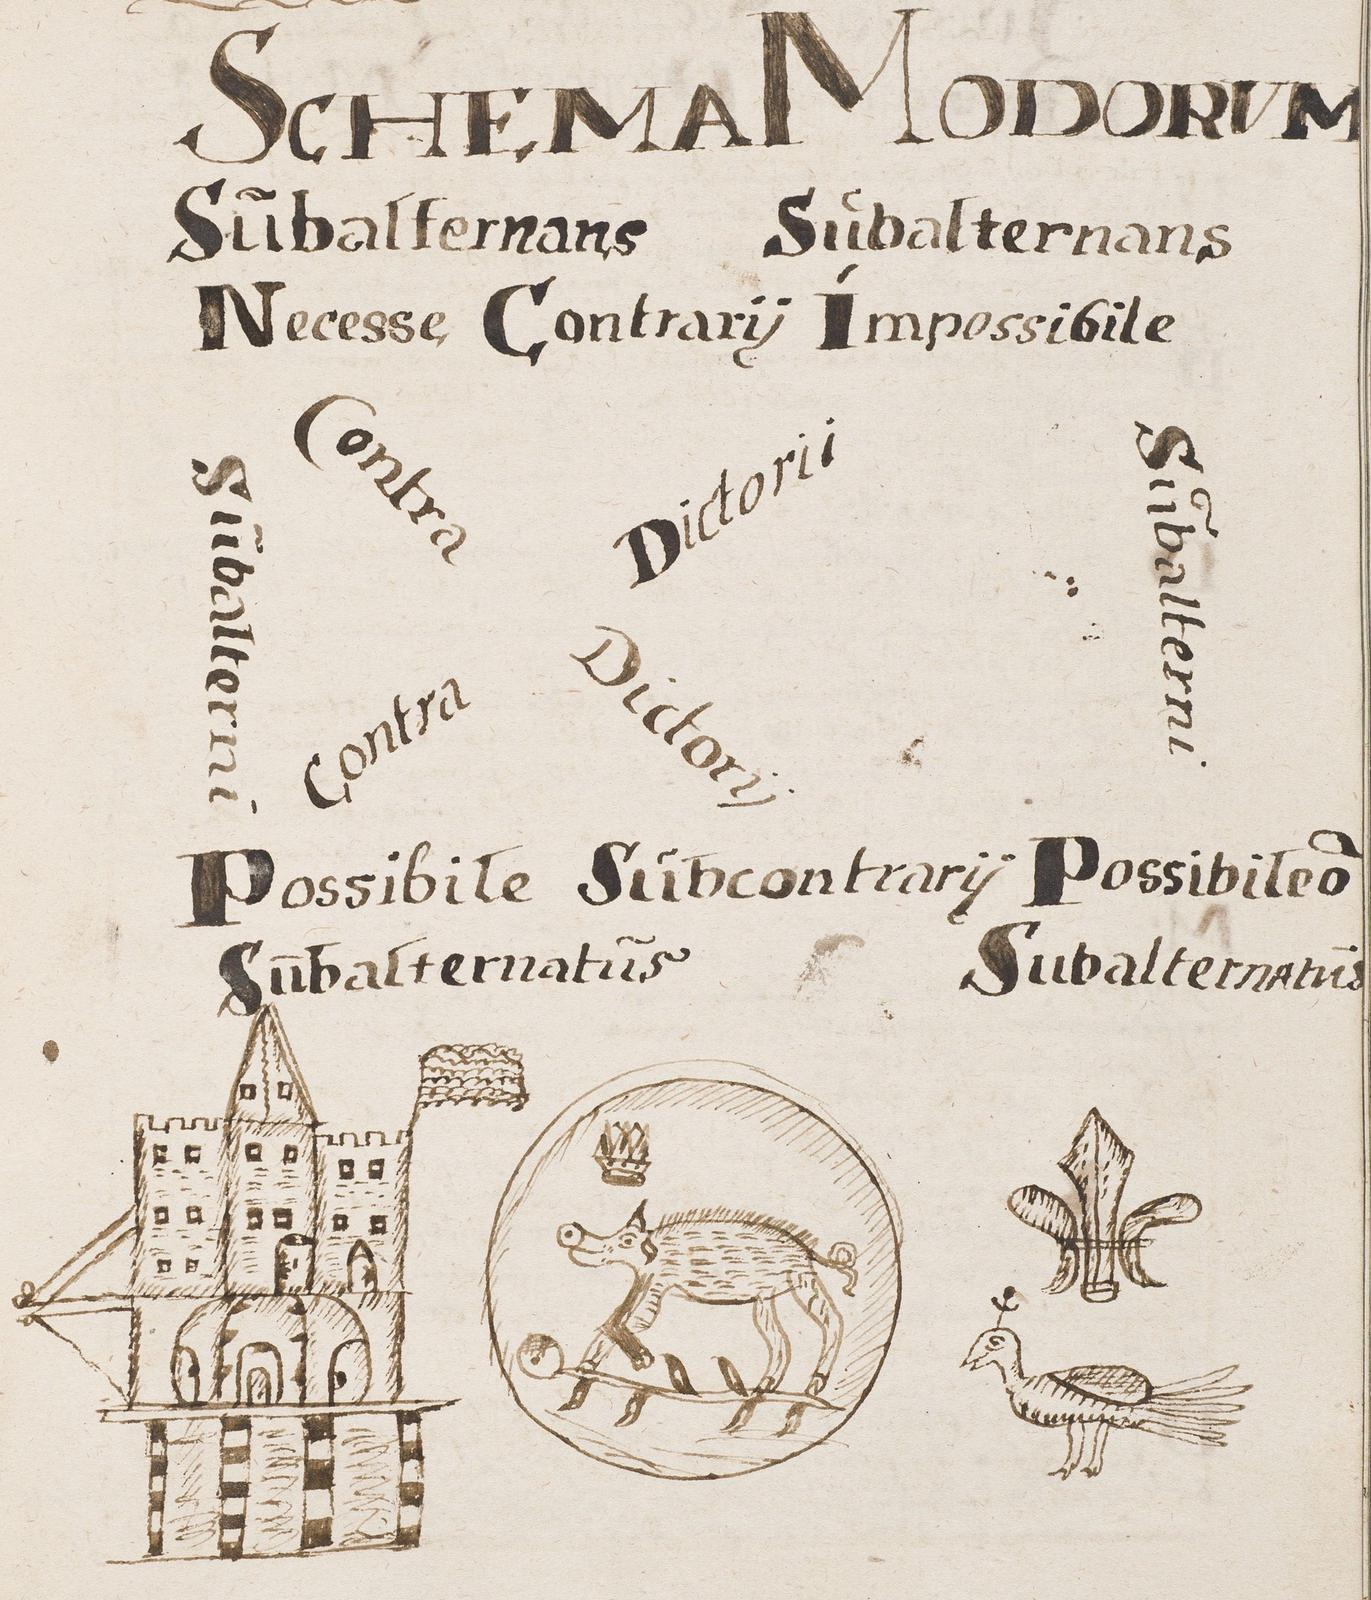 SCHEMA MODORVM
Sũbalternans Sũbalternans
Necesse Contrarij Impossibile
Contra Dictorii
Sũbalterni
Sũbalterni
Contra Dictorij
Possibile Sũbcontrarij Possibile
Sũbalternatũs Subalternatũs